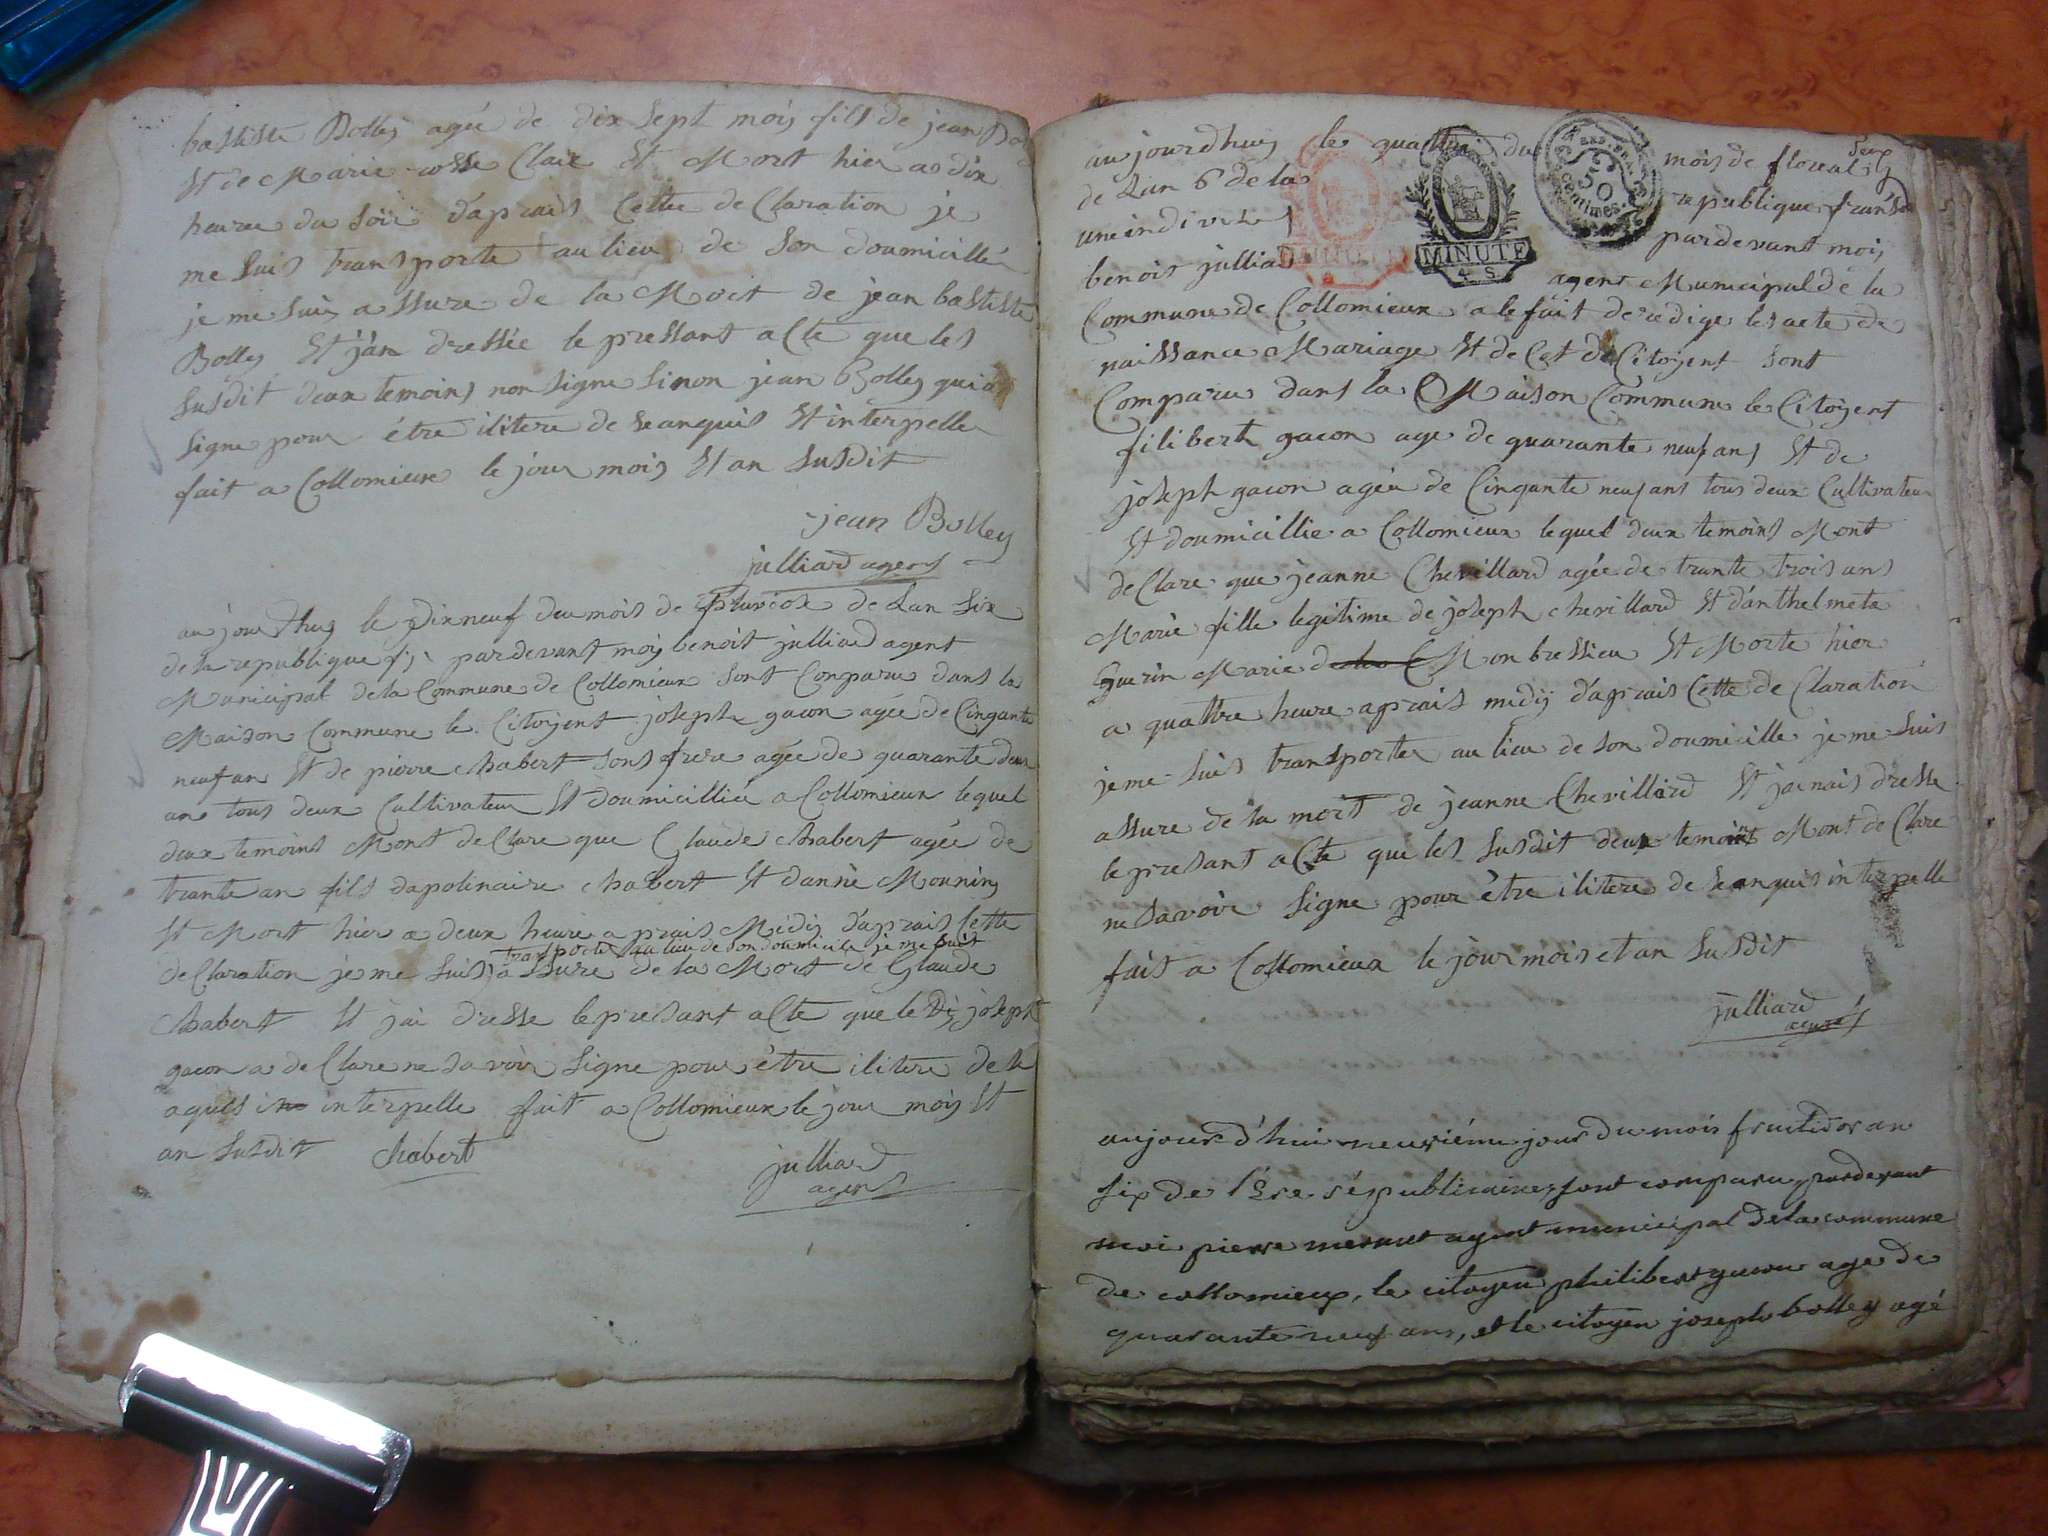 bastiste Bolley agée de dix sept mois fils de jean Bolley
Et de Marie cosse Claie Et Mort hier a dix
heure du soir d'apraits Cette de Claration je
me suis transporte au lieu de son doumicillée
je me suis assure de la Mort de jean bastiste
Bolley Et j'an dressée le pressant aCte que les
susdit deux temoins non signe sinon jean Bolley qui a
signe pour être ilitere de seanquis Et interpelle
fait a Collomieux le jour mois Et an susdit
jean Bolley
julliard agent
aujourdhuy le Dixneuf deu mois de pluviose de Lan six
de la republique f; pardevant moy benoit julliard agent
Municipal de la Commune de Collomieux sont Conparu dans la
Maison Commune le Citoyent joseph gacon agée de Cinqante
neuf an Et de pierre chabert sons frere agée de quarante deux
ans tous deux Cultivateur Et doumicilliée a Collomieux lequel
deux temoins Mont deClare que Claude chabert agée de
trante an fils dapolinaire chabert Et danne Mounin
Et Mort hier a deux heure aprais Midy d'aprais Cette
transporte au lieu de son doumicile je me suit
deClaration je me suis assure de la Mort de Claude
chabert Et jai dresse le presant aCte que le dt joseph
gacon a deClare ne savoir signe pour être ilitere de le
aquis in interpelle fait a Collomieux le jour mois Et
an susdit chabert
julliard
agent
aujourdhuy le quattre du mois de floreal
de Lan 6 de la republique fransa
uneindivise pardevant moy
benois julliard agent Municipal de la
MINUTE
4 S
50 Centimes
Commune de Collomieux a le fait de redige les acte de
naissance Mariage Et de Cet de Citoyent sont
Comparu dans la Maison Commune le Citoyent
filibert gacon age de quarante neuf ans Et de
joseph gacon agée de Cinqante neuf ans tous deux Cultivateur
Et doumicillie a Collomieux lequel deux temoins Mont
deClare que jeanne Chevillard agée de trante trois ans
Marie fille legitime de joseph chevillard Et d'anthelmeta
Guerin Marie de Monbressieu Et Morte hier
a quattre heure aprait midy d'aprais Cette de Claration
je me suis transporter au lieu de son doumicille je me suis
assure de la mort de jeanne Chevillard Et jaenais dresse
le presant aCte que les susdit deux temoint Mont de Clare
ne savoir signe pour être ilitere de seanquis interpelle
fait a Collomieux le jour mois et an susdit
julliard
agent
aujour d'hui neuviéme jour du mois fructidor an
six de l'ére républicaine, sont comparu pardevant
moi pierre mermet agent municipal de la commune
de collomieux, le citoyen philibert gacon age de
quarante neuf ans, et le citoyen joseph bolley agé